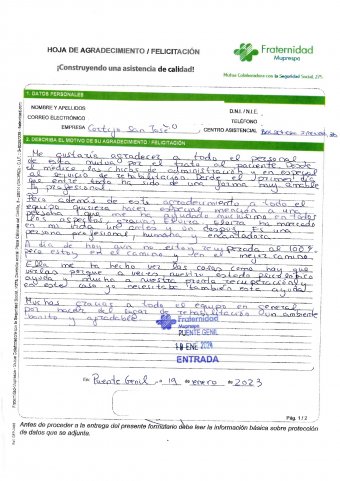 HOJA DE AGRADECIMIENTO / FELICITACIÓN
¡Construyendo una asistencia de calidad!
Fraternidad
Muprespa
Mutua Colaboradora con la Seguridad Social, 275
1. DATOS PERSONALES
NOMBRE Y APELLIDOS
D.N.I./N.I.E.
CORREO ELECTRÓNICO
TELÉFONO
EMPRESA Cortijo San José
CENTRO ASISTENCIAL
2. DESCRIBA EL MOTIVO DE SU AGRADECIMIENTO / FELICITACIÓN
Me gustaría agradecer a todo el personal
de esta mutua por el trato al paciente. Desde
el médico, las chicas de administración y en especial
al servicio de rehabilitación. Desde el primer día
que entré todo ha sido de una forma muy amable
y profesional.
Pero además de este agradecimiento a todo el
equipo quisiera hacer especial mención a una
persona que me ha ayudado muchísimo en todos
los aspectos, gracias ha marcado
en mi vida un antes y un después. Es una
persona profesional, humana y encantadora.
A día de hoy aún no estoy recuperada al 100%
pero estoy en el camino y en el mejor camino.
Ella me ha hecho ver las cosas como hay que
verlas porque a veces nuestro estado psicológico
ayuda mucho a nuestra pronta recuperación y
en este caso yo necesitaba también esta ayuda.
Muchas gracias a todo el equipo en general
por hacer del lugar de rehabilitación un ambiente
bonito y agradable
Fraternidad
Muprespa
PUENTE GENIL
19 ENE 2024
ENTRADA
En Puente Genil a 19 de enero de 2023
Pág. 1 / 2
Antes de proceder a la entrega del presente formulario debe leer la información básica sobre protección
de datos que se adjunta.